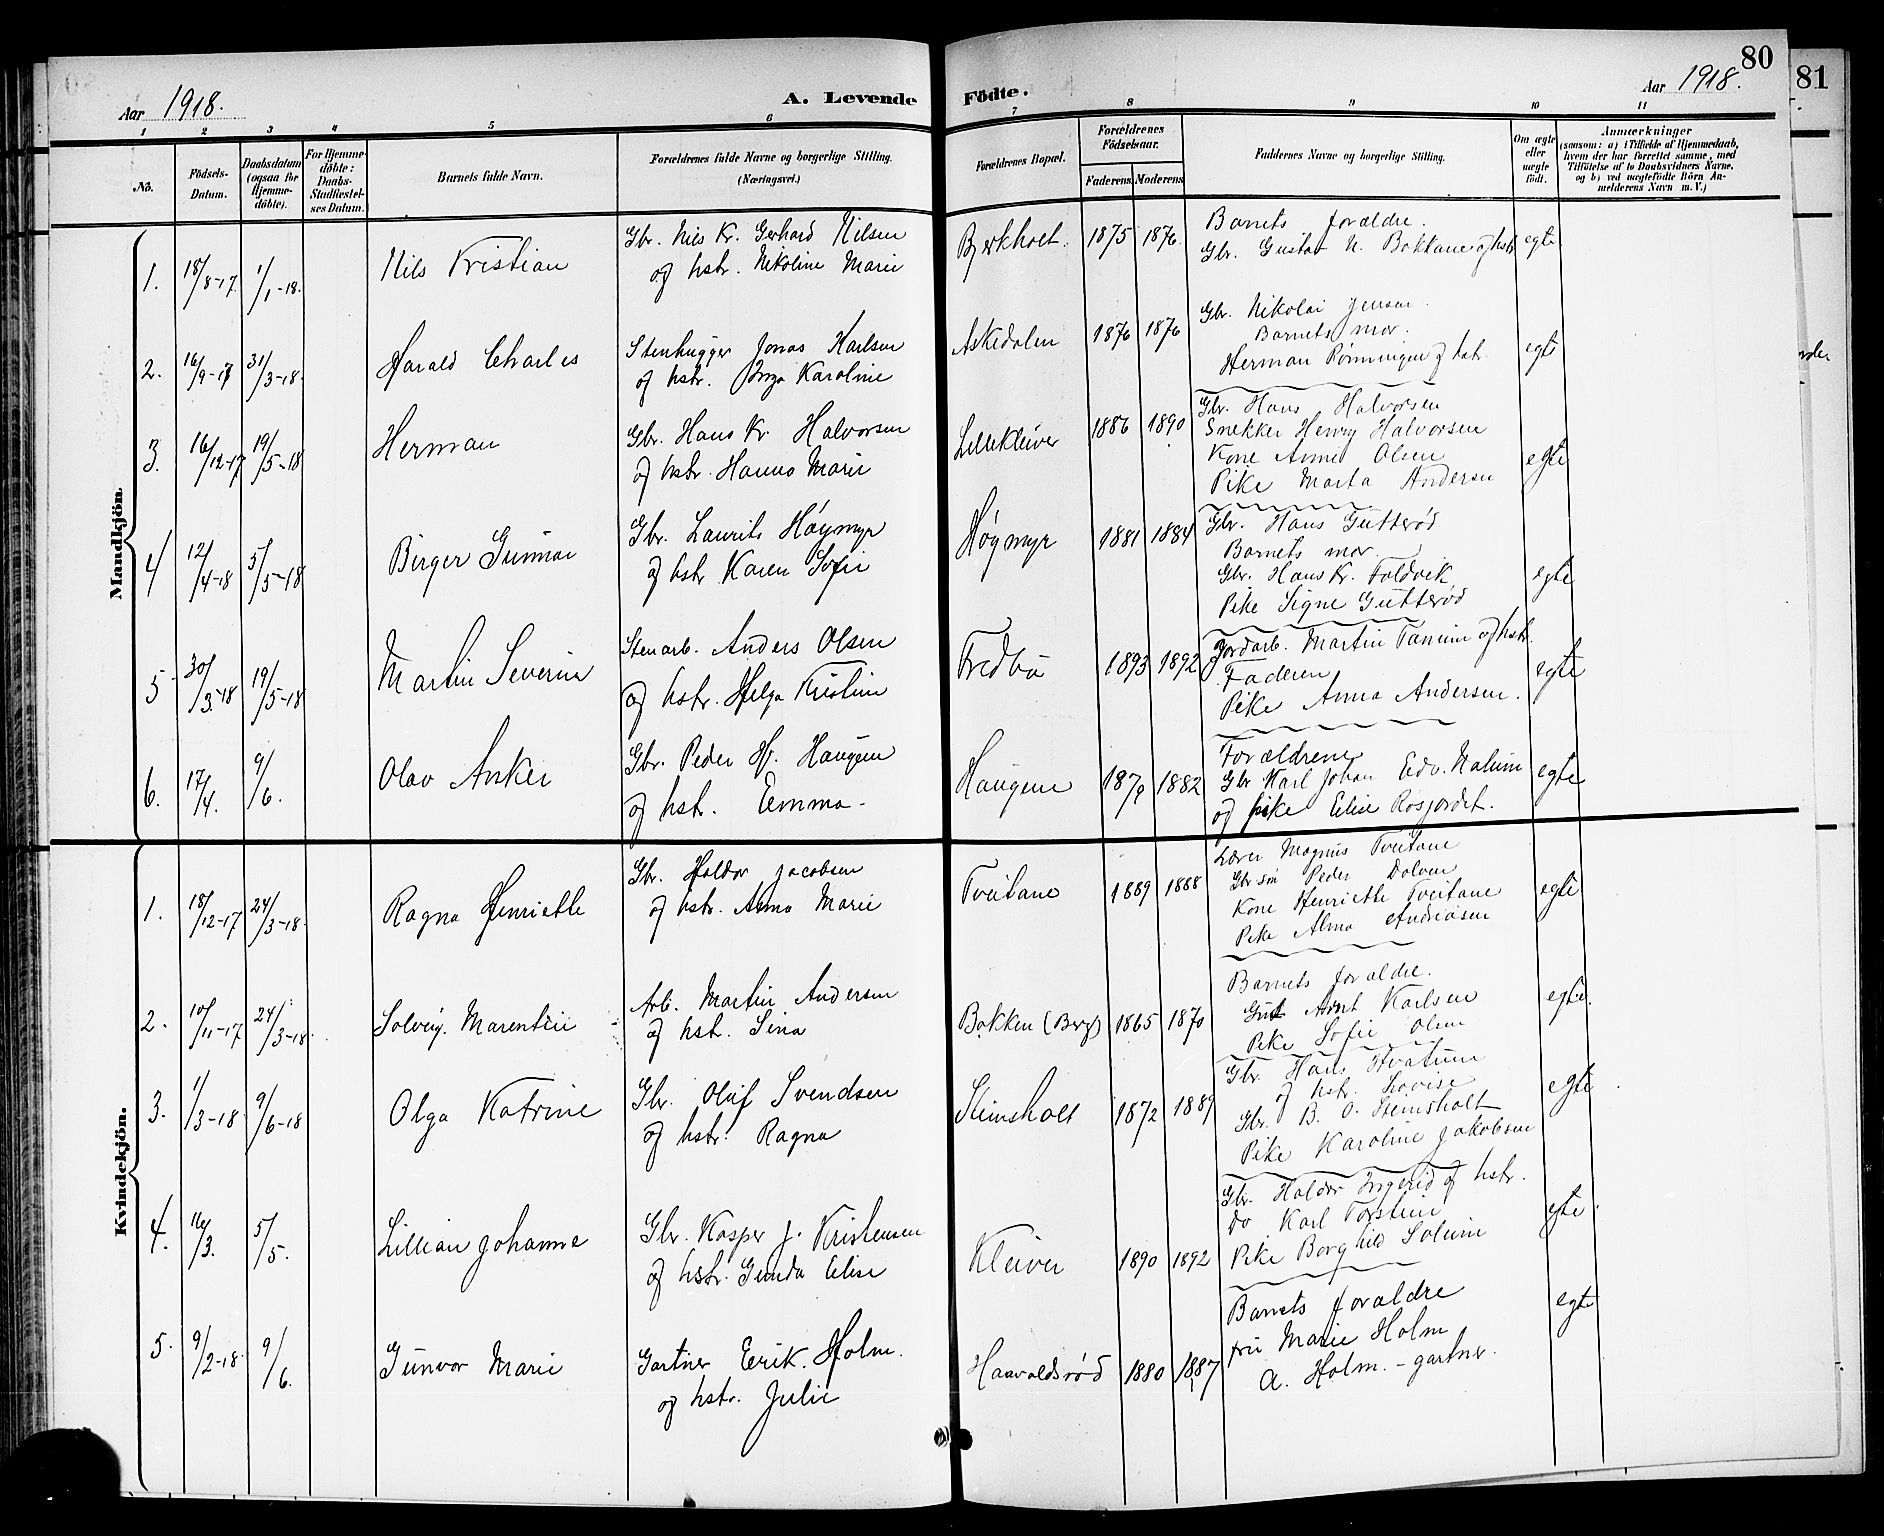 80
81
Aar 1918.
A. Levende Födte.
Aar 1918.
1 2 3 4 5 6 7 8 9 10 11
No.
Födsels-Datum.
Daabsdatum (ogsaa for Hjemme-döbte).
For Hjemme-döbte: Daabs-Stadfæstel-ses Datum.
Barnets fulde Navn.
Forældrenes fulde Navne og borgerlige Stilling. (Næringsvei.)
Forældrenes Bopæl.
Forældrenes Födselsaar.
Faderens Moderens
Faddernes Navne og borgerlige Stilling.
Om ægte eller uægte født.
Anmærkninger
(saasom: a) i Tilfælde af Hjemmedaab, hvem der har forrettet samme, med Tilföielse af to Daabsvidners Navne, og b) ved uægtefödte Börn An-melderens Navn m. V.)
Mandkjön.
1. 18/8-17 1/1-18. Nils Kristian
Gbr. Nils Kr. Gerhard Nilsen
og hstr. Nikoline Marie
Bjerkholt. 1875 1876.
Barnets forældre.
Gbr. Gustav N. Bakkane og hstr.
egte
2. 16/9-17 31/3-18. Harald Charles
Stenhugger Jonas Karlsen
og hstr. Inga Karoline
Askedalen 1876 1876
Gbr. Nikolai Jensen.
Barnets mor.
Herman Rønningen og hstr.
egte
3. 16/12-17 19/5-18 Herman
Gbr. Hans Kr. Halvorsen
og hstr. Hanna Marie
Lillekleiver 1886 1890
Gbr. Hans Halvorsen
Snekker Henry Halvorsen
Kone Anne Olsen
Pike Marta Andersen
egte
4 12/4-18 5/5-18 Birger Gunnar
Gbr. Laurits Høymyr
og hstr. Karen Sofie
Høymyr 1881 1884
Gbr. Hans Gutterød
Barnets mor.
Gbr. Hans Kr. Foldvik
Pike Signe Gutterød
egte
5 30/3-18 19/5-18 Martin Severin
Stenarb. Anders Olsen
og hstr. Helga Kristine
Fredbo 1893 1892
Jordarb. Martin Tanum og hstr.
Faderen
Pike Anna Andersen.
egte
6. 17/4. 9/6. Olav Anker
Gbr. Peder Hj. Haugene
og hstr. Emma
Haugene 1879 1882
Forældrene
Gbr Karl Johan Edv. Nalum
og pike Elise Rosjordet.
egte
Kvindekjön.
1. 18/12-17 24/3-18. Ragna Henriette
Gbr. Haldor Jacobsen
og hstr. Anna Marie
Tveitane 1889 1888
Lærer Magnus Tveitane
Gbr søn Peder Dolven
Kone Henriette Tveitane
Pike Alma Andreasen
egte
2. 10/11-17 24/3-18. Solveig Marentin
Arb. Martin Andersen
og hstr. Sina
Bakken (Berg) 1865 1870
Barnets forældre.
Gut Arnt Karlsen
Pike Sofie Olsen
egte.
3. 1/3-18 9/6-18 Olga Katrine
Gbr. Oluf Svendsen
og hstr. Ragna
Steinsholt 1872 1889
Gbr. Hans Hvatum
og hstr. Lovise
Gbr. B. O. Steinsholt
Pike Karoline Jakobsen
egte
4. 16/3. 5/5. Lillian Johanne
Gbr. Kasper J. Kristensen
og hstr. Gunda Elise
Kleiver 1890 1892
Gbr. Haldor Ingerid og hstr.
Do Karl Torstein
Pike Borghild Solum
egte.
5. 9/2-18. 9/6. Gunvor Marie
Gartner Eerik. Holm.
og hstr. Julie
Haavaldsrød 1880 1887
Barnets forældre
fru Marie Holm
A. Holm. - gartner.
egte